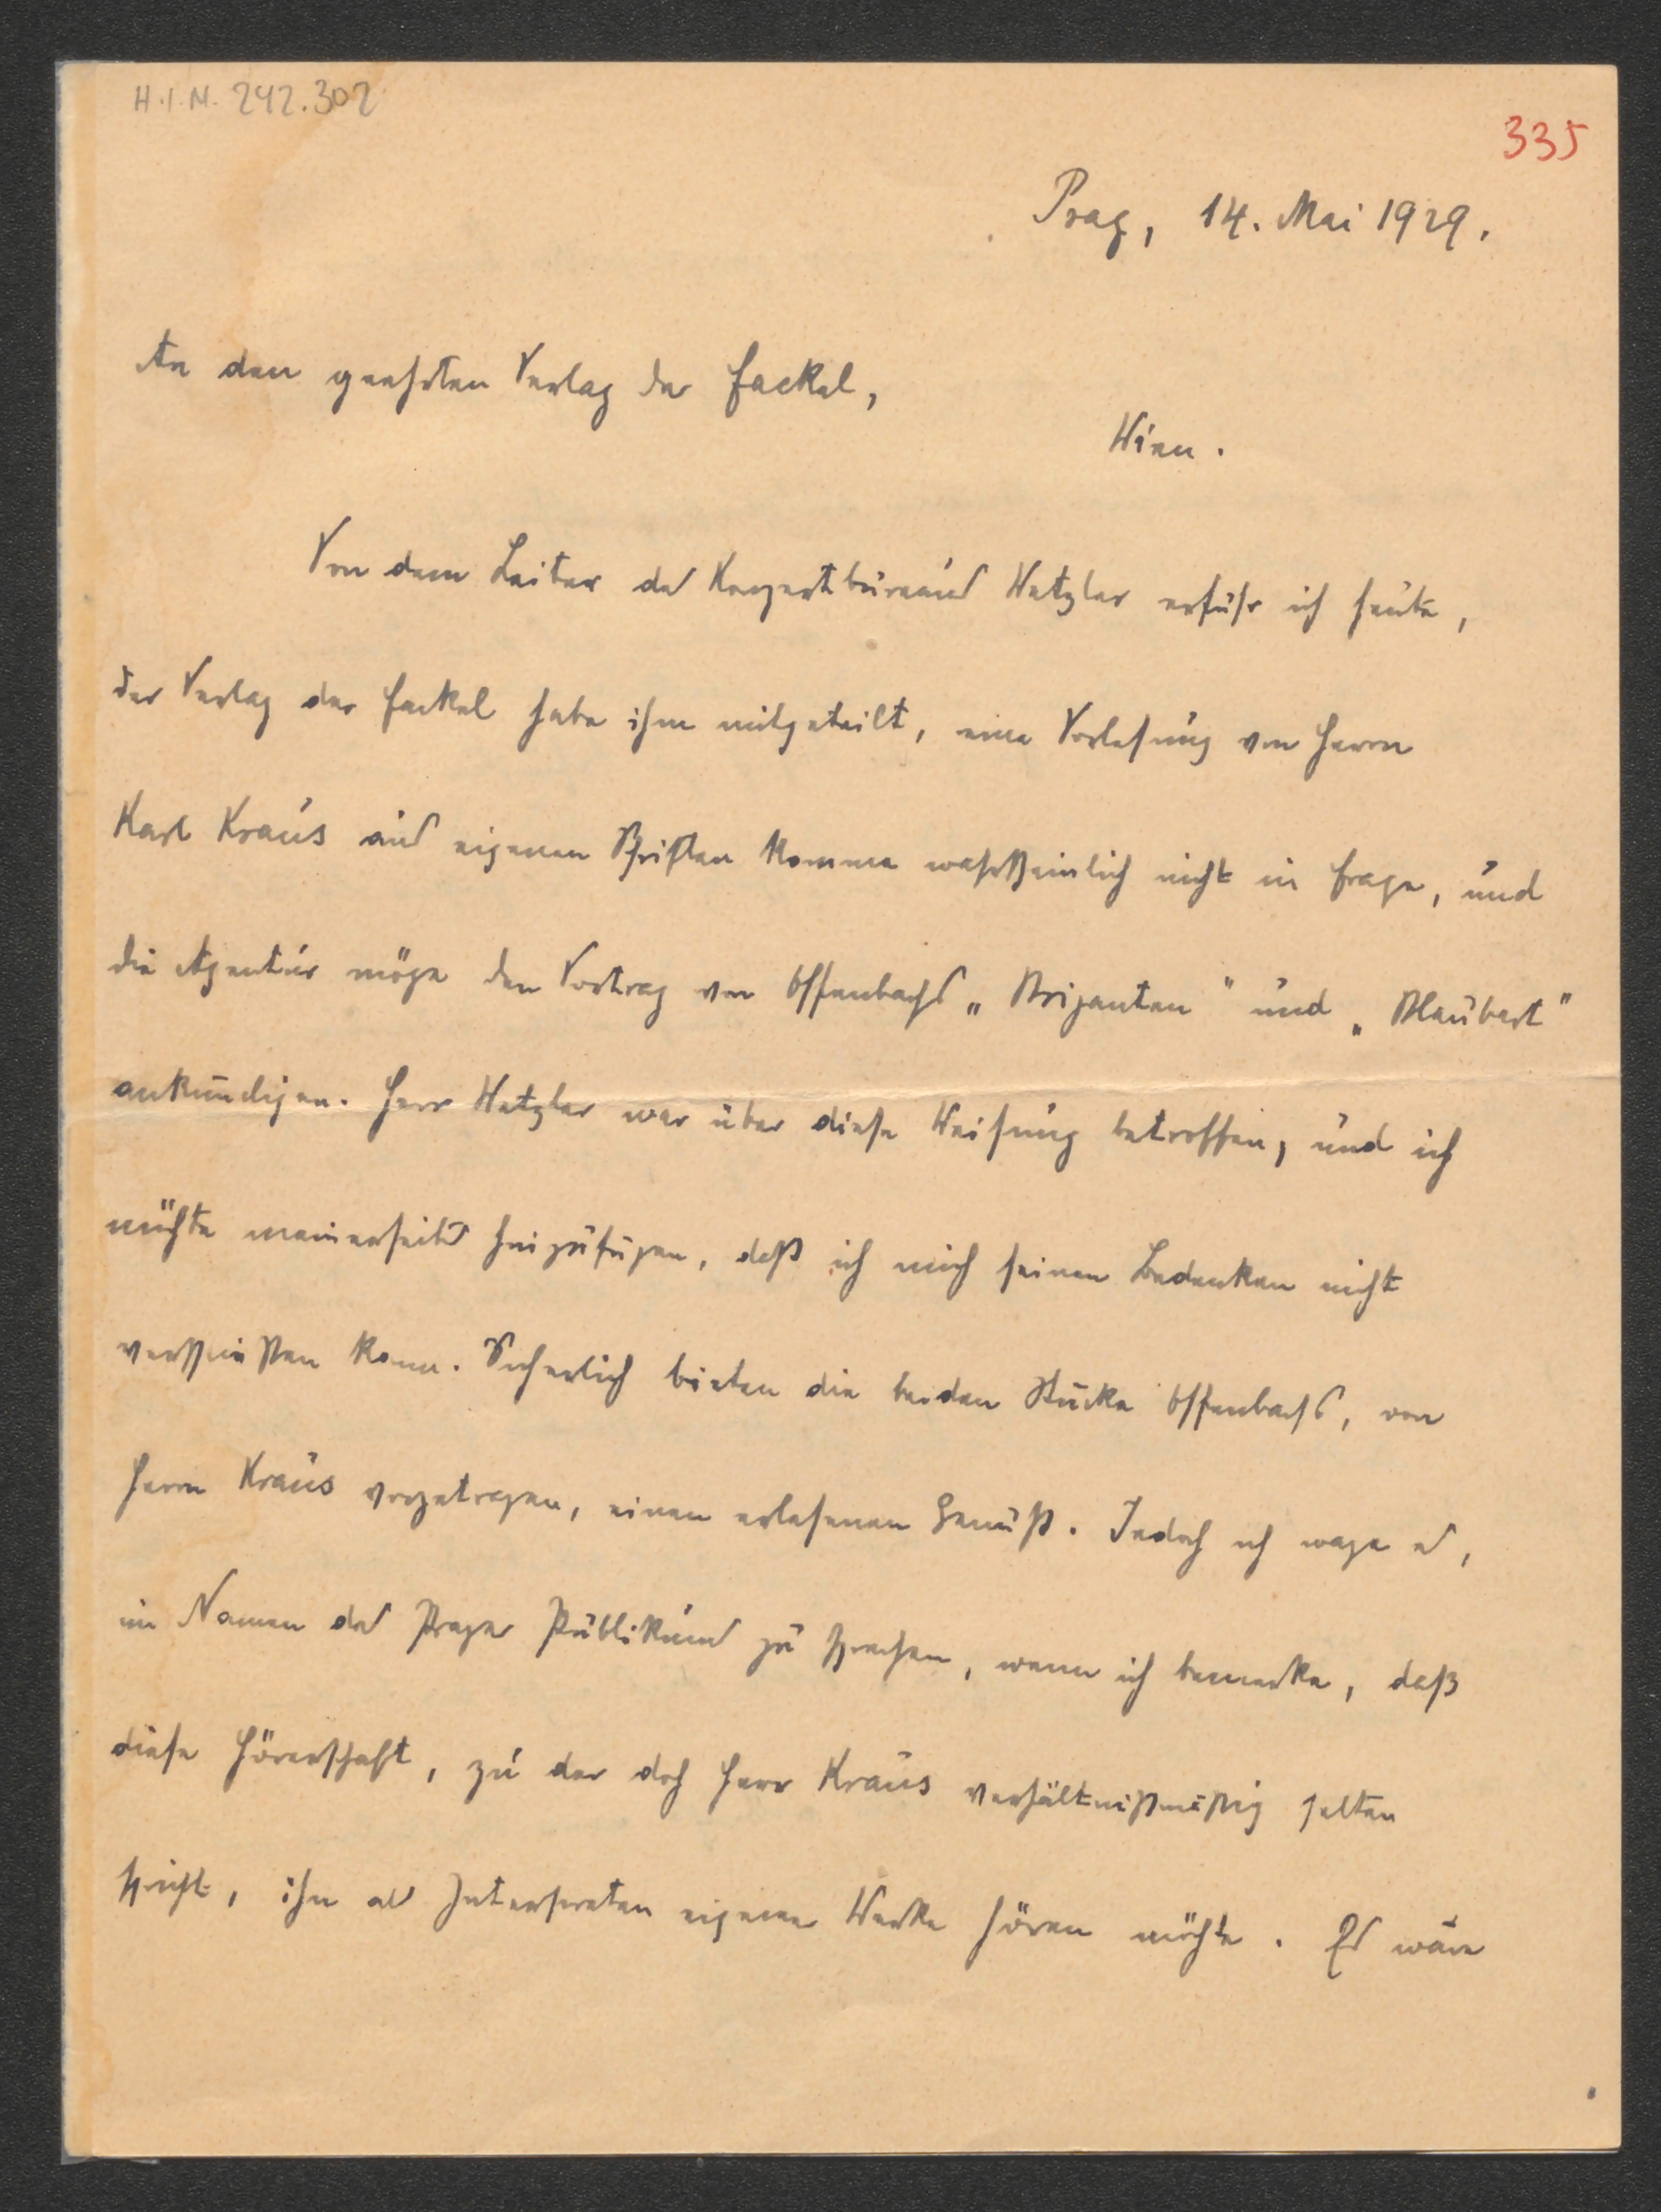 H.I.N. 242.302
335
Prag, 14. Mai 1929.
An den geehrten Verlag der Fackel,
Wien.
Von dem Leiter des Konzertbüreaus Wetzler erfuhr ich heute,
der Verlag der Fackel habe ihm mitgeteilt, eine Vorlesung von Herrn
Karl Kraus aus eigenen Schriften komme wahrscheinlich nicht in Frage, und
die Agentur möge den Vortrag von Offenbachs „Briganten" und „Blaubart"
ankündigen. Herr Wetzler war über diese Weisung betroffen, und ich
möchte meinerseits hinzufügen, daß ich mich seinen Bedenken nicht
verschließen kann. Sicherlich bieten die beiden Stücke Offenbachs, von
Herrn Kraus vorgetragen, einen erlesenen Genuß. Jedoch ich wage es,
im Namen des Prager Publikums zu sprechen, wenn ich bemerke, daß
diese Hörerschaft, zu der doch Herr Kraus verhältnißmäßig selten
spricht, ihn als Interpreten eigener Werke hören möchte. Es wäre